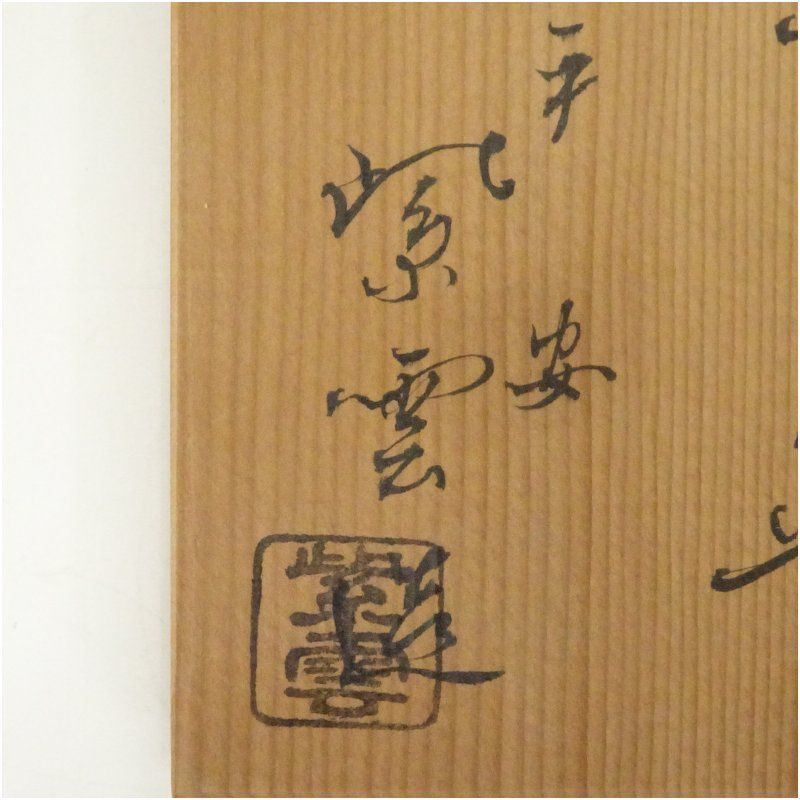 平安
紫雲造
紫雲